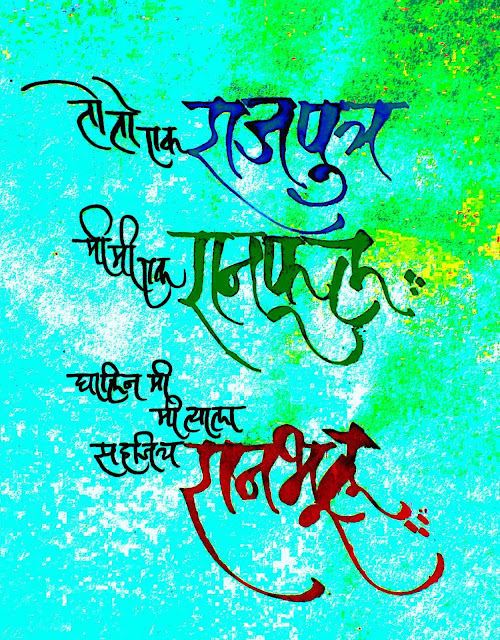 तो तो एक राजपुत्र
मी मी एक रानफूल
घालिन मी
मी त्याला
सहजिच रानभूल